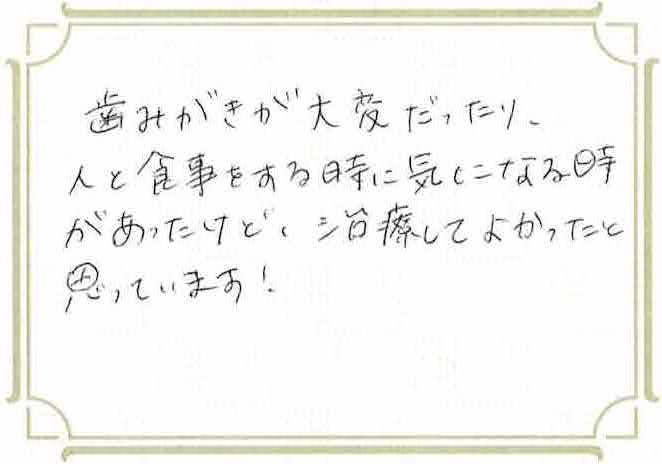 歯みがきが大変だったり、
人と食事をする時に気になる時
があったけど、治療してよかったと
思っています!